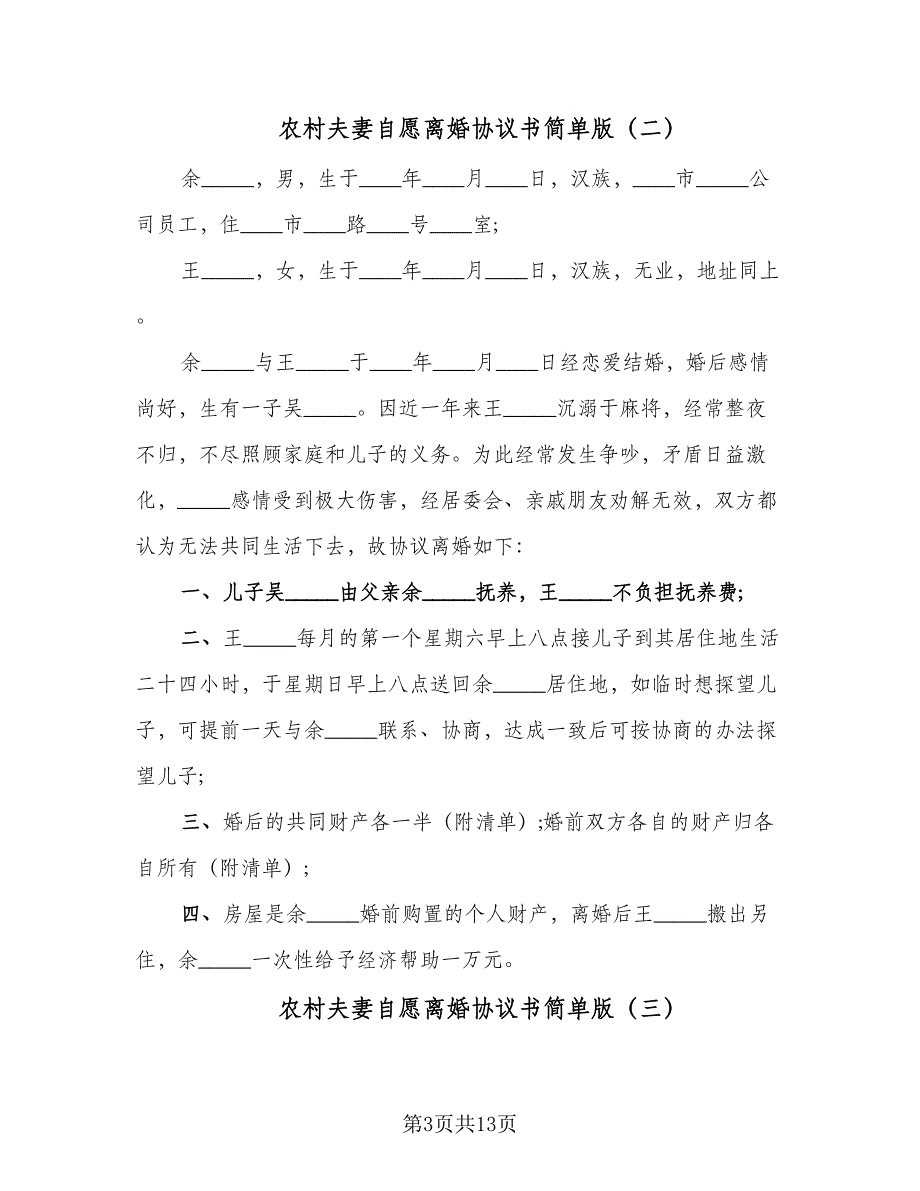 农村夫妻自愿离婚协议书简单版（二）
余_____，男，生于____年____月____日，汉族，____市_____公
司员工，住____市____路____号____室;
王_____，女，生于____年____月____日，汉族，无业，地址同上
。
余_____与王_____于____年____月____日经恋爱结婚，婚后感情
尚好，生有一子吴_____。因近一年来王_____沉溺于麻将，经常整夜
不归，不尽照顾家庭和儿子的义务。为此经常发生争吵，矛盾日益激
化，_____感情受到极大伤害，经居委会、亲戚朋友劝解无效，双方都
认为无法共同生活下去，故协议离婚如下：
一、儿子吴_____由父亲余_____抚养，王_____不负担抚养费;
二、王_____每月的第一个星期六早上八点接儿子到其居住地生活
二十四小时，于星期日早上八点送回余_____居住地，如临时想探望儿
子，可提前一天与余_____联系、协商，达成一致后可按协商的办法探
望儿子;
三、婚后的共同财产各一半（附清单）;婚前双方各自的财产归各
自所有（附清单）;
四、房屋是余_____婚前购置的个人财产，离婚后王_____搬出另
住，余_____一次性给予经济帮助一万元。
农村夫妻自愿离婚协议书简单版（三）
第3页共13页